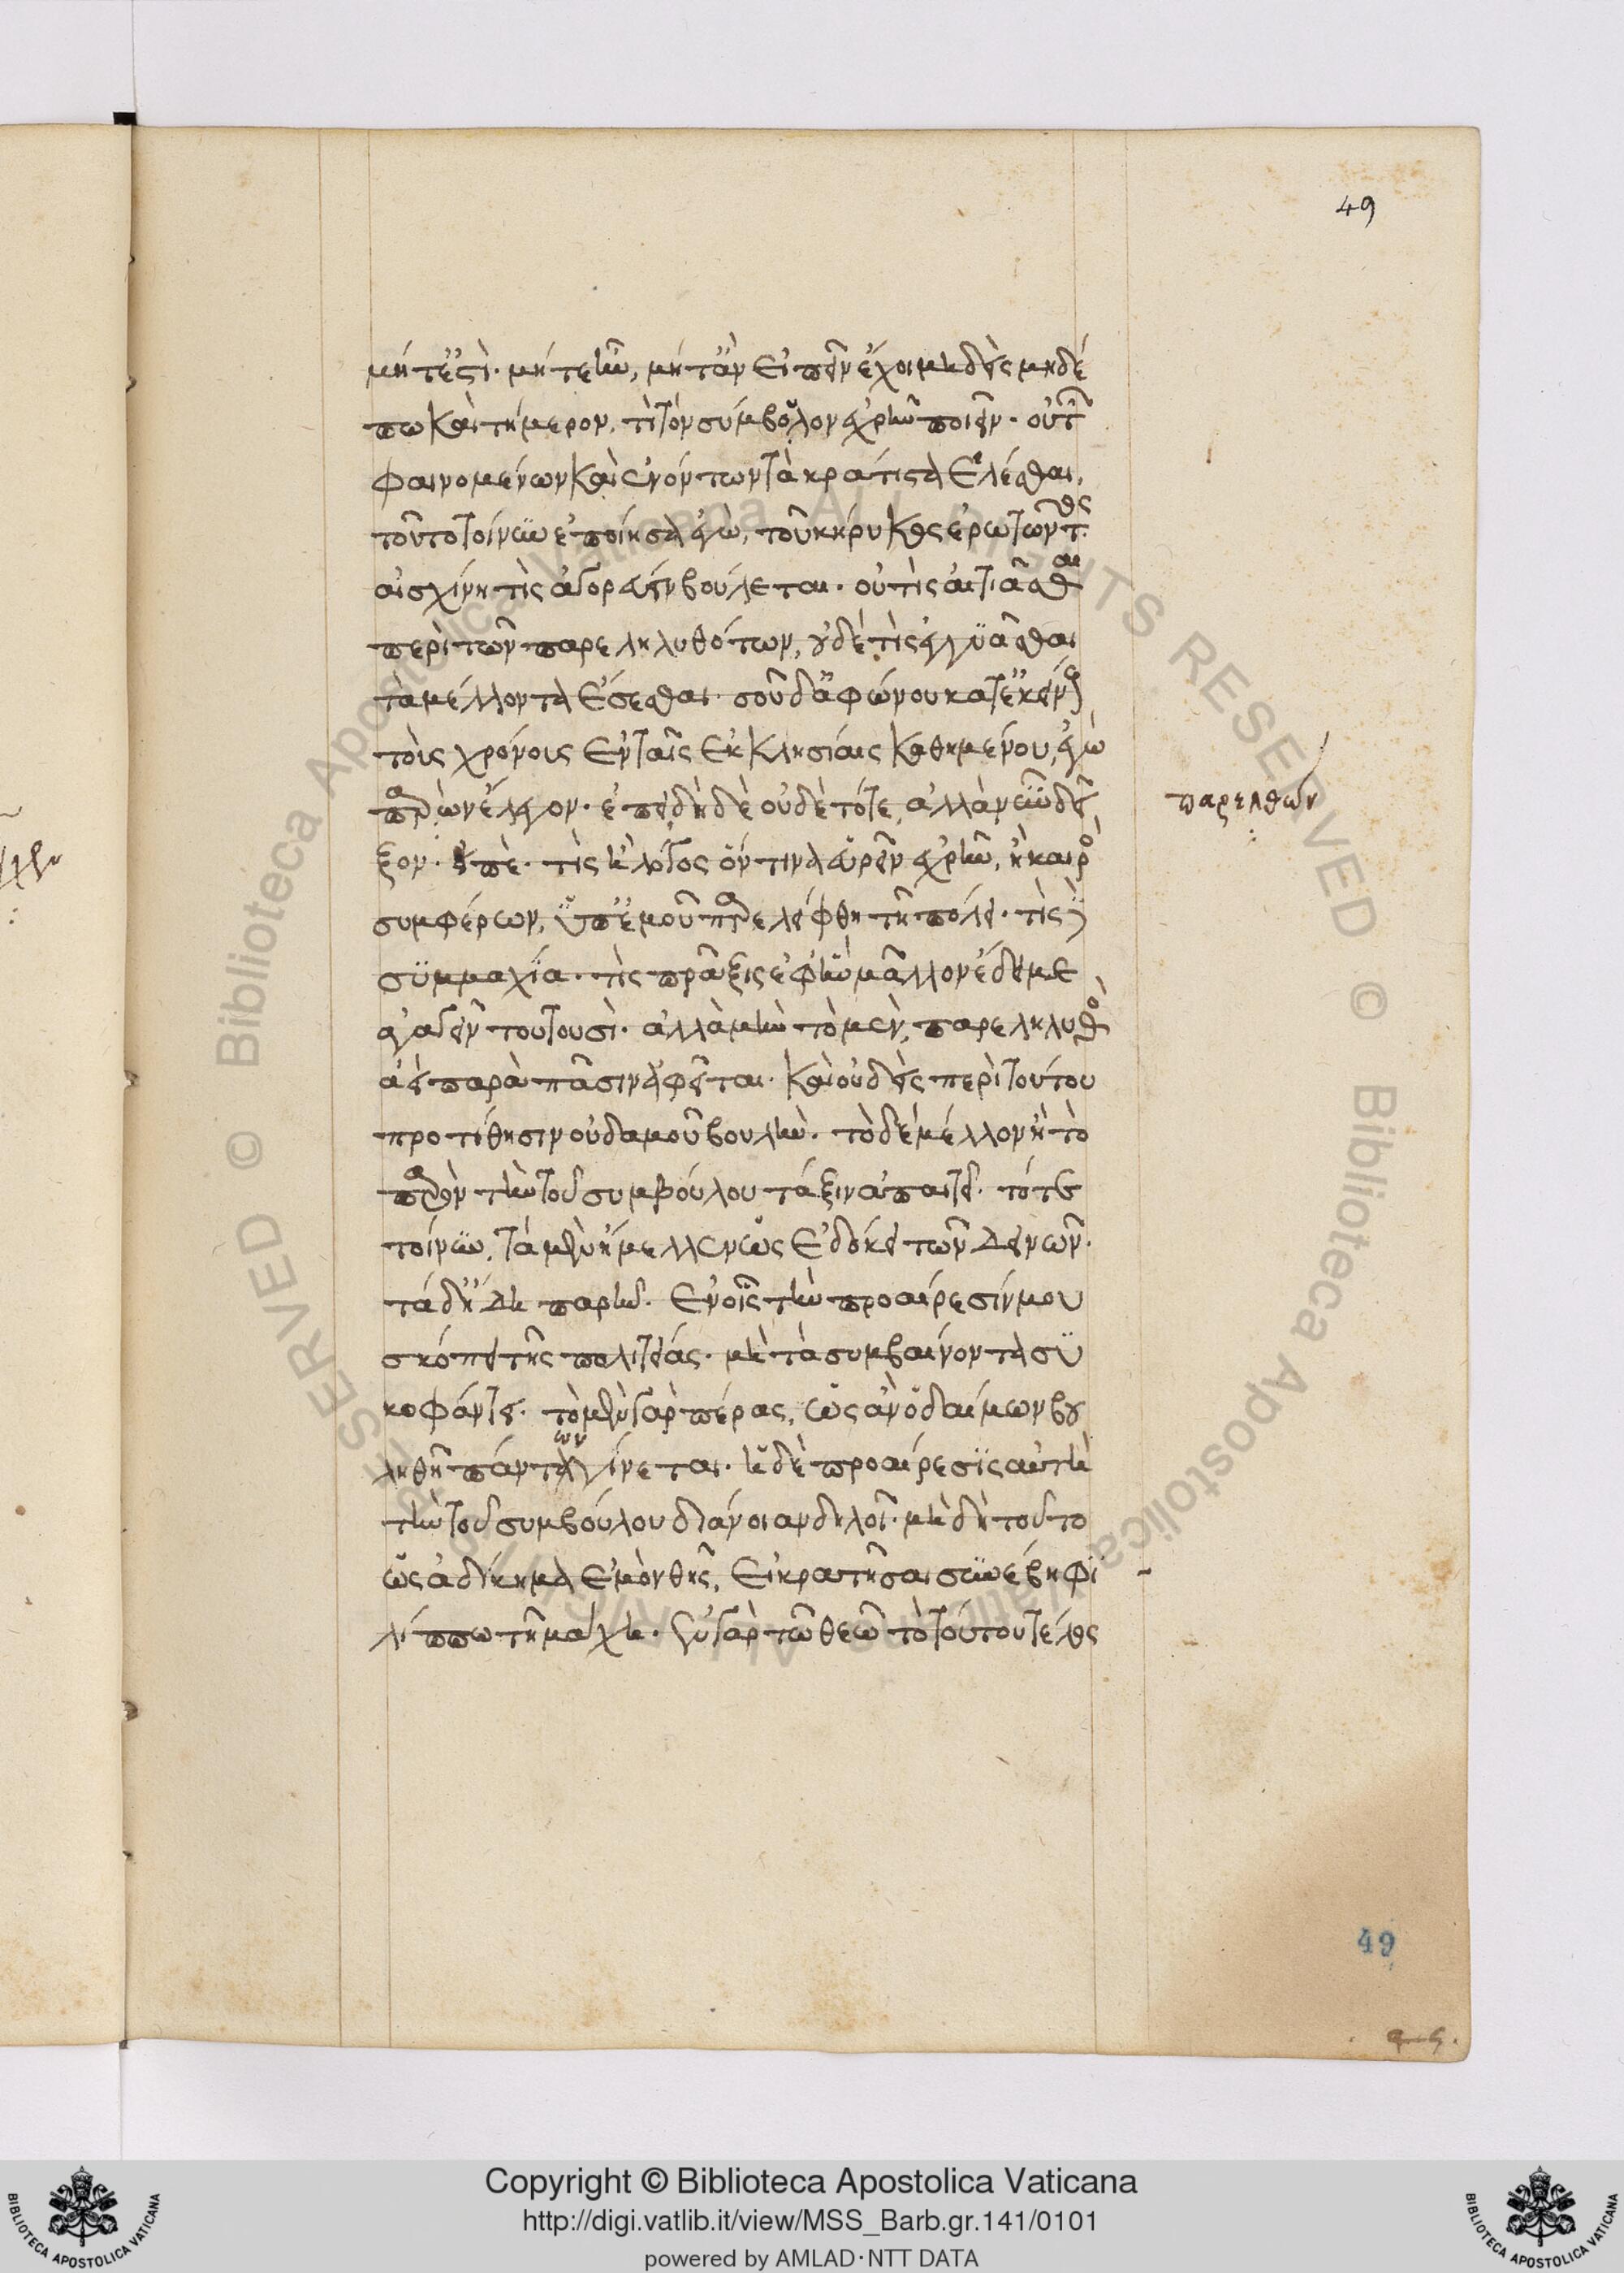 49
μήτ' ἔστι· μήτε ἦν, μήτ' ἂν εἰπεῖν ἔχοι μηδεὶς μηδέ
πω καὶ τήμερον, τί τὸν σύμβολον ἐχρῆν ποιεῖν· οὐ τῶν
φαινομένων καὶ ἐνόντων τὰ κράτιστα ἑλέσθαι,
τοῦτο τοίνυν ἐποίησα ἐγὼ, τοῦ κήρυκος ἐρωτῶντος
αἰσχίνη τίς ἀγορεύειν βούλεται· οὐ τίς αἰτιᾶσθαι
περὶ τῶν παρεληλυθότων, οὐδὲ τίς ἐγγυᾶσθαι
τὰ μέλλοντα ἔσεσθαι· σοῦ δ' ἀφώνου κατ' ἐκείνους
τοὺς χρόνους ἐν ταῖς ἐκκλησίαις καθημένου, ἐγὼ
παριὼν ἔλεγον· ἐπειδὴ δὲ οὐδὲ τότε, ἀλλὰ νῦν δεῖ
παρελθὼν
ξον· εἰπὲ· τίς ἢ λόγος ὅντινα εὑρεῖν ἐχρῆν, ἢ καιρὸς
συμφέρων, ὑπ' ἐμοῦ παρελείφθη τῇ πόλει· τίς δὲ
συμμαχία· τίς πρᾶξις ἐφ' ἣν μᾶλλον ἔδει με
ἀγαγεῖν τουτουσί· ἀλλὰ μὴν τὸ μὲν, παρεληλυθὸς
ἀεὶ παρὰ πᾶσιν ἀφεῖται· καὶ οὐδεὶς περὶ τούτου
προτίθησιν οὐδαμοῦ βουλήν· τὸ δὲ μέλλον ἢ τὸ
παρὸν τὴν τοῦ συμβούλου τάξιν ἀπαιτεῖ· τότε
τοίνυν, τὰ μὲν ἤμελλεν ὡς ἐδόκει τῶν δεινῶν·
τὰ δ' ἤδη παρῆν· ἐν οἷς τὴν προαίρεσίν μου
σκόπει τῆς πολιτείας· μὴ τὰ συμβαίνοντα συ
κοφάντει· τὸ μὲν γὰρ πέρας, ὡς ἂν ὁ δαίμων βου
ληθῇ πάντων γίνεται· ἡ δὲ προαίρεσις αὐτὴ
τὴν τοῦ συμβούλου διάνοιαν δηλοῖ· μὴ δὴ τοῦτο
ὡς ἀδίκημα ἐμὸν θῇς, εἰ κρατῆσαι συνέβη φι
λίππω τῇ μάχῃ· ἐν γὰρ τῷ θεῷ τὸ τούτου τέλος
49
Copyright © Biblioteca Apostolica Vaticana
http://digi.vatlib.it/view/MSS_Barb.gr.141/0101
powered by AMLAD·NTT DATA